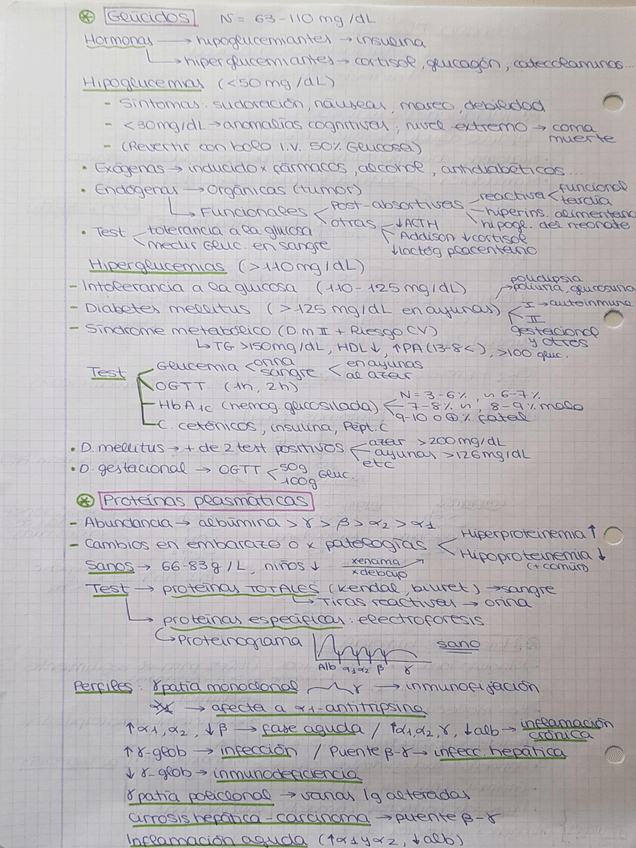 ⊛ Glúcidos N = 63-110 mg/dL
Hormonas → hipoglucemiantes → insulina
↳ hiperglucemiantes → cortisol, glucagón, catecolaminas...
Hipoglucemias (<50 mg/dL)
- Síntomas: sudoración, náuseas, mareo, debilidad
- <30mg/dL → anomalías cognitivas, nivel extremo → coma muerte
- (Revertir con bolo I.V. 50% Glucosa)
• Exógenas → inducido x fármacos, alcohol, antidiabéticos...
• Endógenas → Orgánicas (tumor)
↳ Funcionales < Post-absortivas < reactiva < funcional tardía
hiperins. alimentaria
otras < ↓ACTH hipogl. del neonato
Addison ↓cortisol
↓lactóg placentario
• Test < tolerancia a la glucosa
medir Gluc. en sangre
Hiperglucemias (>110 mg/dL)
- Intolerancia a la glucosa (110-125 mg/dL)
polidipsia, poliuria, glucosuria
- Diabetes mellitus (>125 mg/dL en ayunas) < I → autoinmune
II
gestacional y otros
- Síndrome metabólico (D.m II + Riesgo CV)
↳ TG >150mg/dL, HDL↓, ↑PA (13-8<), >100 gluc.
Test Glucemia < orina sangre < en ayunas al azar
OGTT (1h, 2h)
HbA1c (hemog. glucosilada) < N = 3-6%, ~ 6-7%
7-8% ~, 8-9% malo
9-10 o ⊕ % fatal
C. cetónicos, insulina, Pépt. C
• D. mellitus → + de 2 test positivos < azar >200mg/dL
ayunas >126mg/dL
etc
• D. gestacional → OGTT < 50g 100g Gluc.
⊛ Proteínas plasmáticas
- Abundancia → albúmina > γ > β > α2 > α1
- Cambios en embarazo o x patologías < Hiperproteinemia ↑
Hipoproteinemia ↓ (+ común)
Sanos → 66-83g/L, niños ↓ x encima x debajo
Test → proteínas TOTALES (Kendal, biuret) → sangre
↳ Tiras reactivas → orina
↳ proteínas específicas: electroforesis
↳ Proteinograma sano
Alb α1 α2 β γ
Perfiles: γpatía monoclonal γ → inmunofijación
afecta a α1-antitripsina
↑α1, α2, ↓β → fase aguda / ↑α1, α2, γ, ↓alb → inflamación crónica
↑γ-glob → infección / Puente β-γ → infecc. hepática
↓γ-glob → inmunodeficiencia
γpatía policlonal → varias Ig alteradas
Cirrosis hepática - carcinoma → puente β-γ
Inflamación aguda (↑α1 y α2, ↓alb)